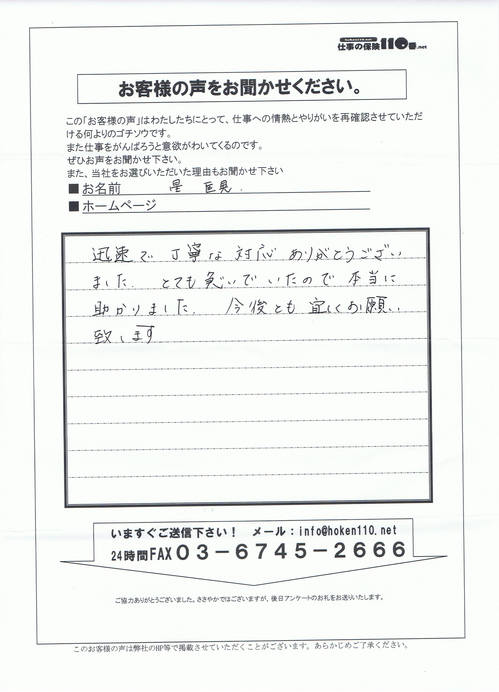 hoken110.net
仕事の保険110番.net
お客様の声をお聞かせください。
この「お客様の声」はわたしたちにとって、仕事への情熱とやりがいを再確認させていただ
ける何よりのゴチソウです。
また仕事をがんばろうと意欲がわいてくるのです。
ぜひお声をお聞かせ下さい。
また、当社をお選びいただいた理由もお聞かせ下さい
■お名前 星 匡見.
■ホームページ
迅速で 丁寧な 対応 ありがとうござい
ました. とても急いでいたので 本当に
助かりました. 今後とも 宜しくお願い
致します
いますぐご送信下さい! メール:info@hoken110.net
24時間FAX03-6745-2666
ご協力ありがとうございました。ささやかではございますが、後日アンケートのお礼をお送りいたします。
このお客様の声は弊社のHP等で掲載させていただくことがございます。あらかじめご了承ください。